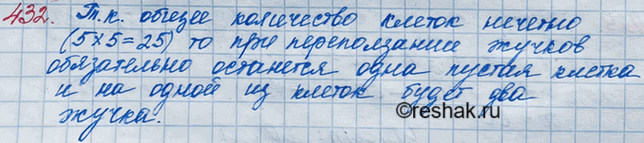 432. Т.к. общее количество клеток нечетно
(5×5=25) то при переползании жучков
обязательно останется одна пустая клетка
и на одной из клеток будет два
жучка.
©reshak.ru